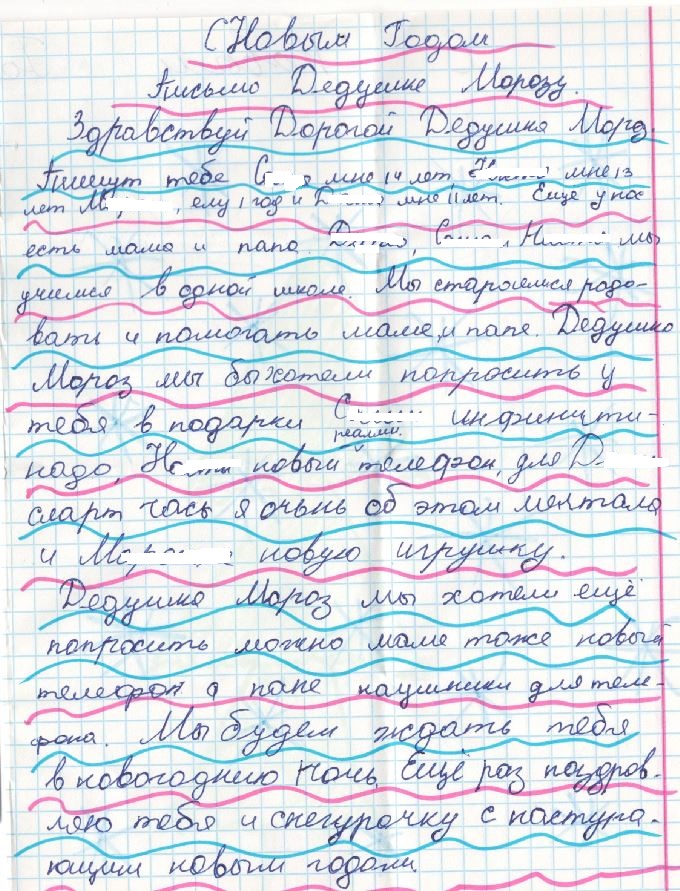 С Новым Годом
Письмо Дедушке Морозу.
Здравствуй Дорогой Дедушка Мороз.
Пишут тебе С я мне 14 лет, мне 13
лет М , ему 1 год и Д мне 11 лет. Еще у нас
есть мама и папа. Д , С , Н мы
учимся в одной школе. Мы стараемся радо-
вать и помогать маме, и папе. Дедушка
Мороз мы бы хотели попросить у
тебя в подарки С инфинити-
реалми.
надо, Н новый телефон, для Д
смарт часы я очень об этом мечтала
и М новую игрушку.
Дедушка Мороз мы хотели ещё
попросить можно маме тоже новый
телефон а папе наушники для теле-
фона. Мы будем ждать тебя
в новогоднию ночь. Ещё раз поздров-
ляю тебя и снегурочку с наступа-
ющим новым годом.